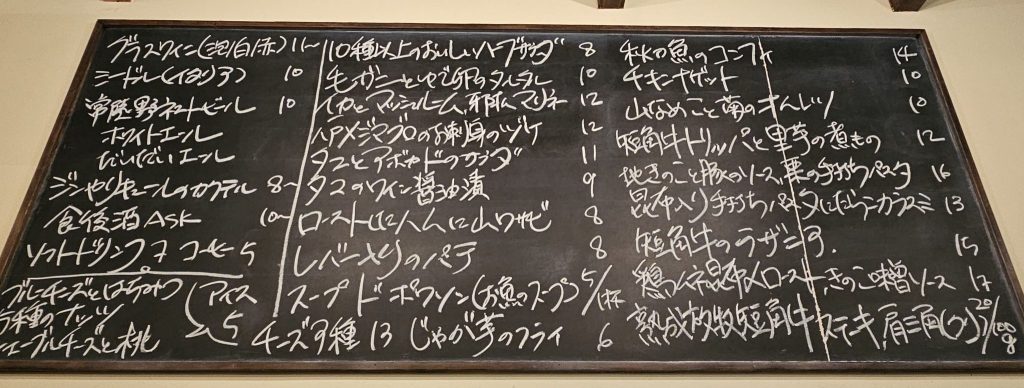 グラスワイン(泡/白/赤) 11〜
ミードレ(イタリア) 10
常陸野ネストビール 10
ホワイトエール
だいだいエール
ジンやリキュールのカクテル 8〜
食後酒 ASK 10〜
ソフトドリンク コーヒー 5
ブルーチーズとはちみつ
種のナッツ
シェーブルチーズと桃
アイス
5
10種以上のおいしいハーブサラダ 8
毛ガニとゆで卵のタルタル 10
イカとマッシュルーム マリネ 12
メジマグロの 身のヅケ 12
タコとアボカドのサラダ 11
タコのワイン醤油漬 9
ローストにんじんに山ワサビ 8
レバー入りのパテ 8
スープ ド ポワソン(お魚のスープ) 5/1杯
チーズ3種 13
じゃが芋のフライ 6
秋の魚のコンフィ 14
チキンナゲット 10
山なめこと菊のオムレツ 10
短角牛トリッパと里芋の煮もの 12
地きのこと豚のソース、栗の手打ちパスタ 16
昆布入り手打ちパスタにボラカラスミ 13
短角牛のラザニア 15
鴨ムネ昆布〆ロースト、きのこ味噌ソース 17
熟成放牧短角牛ステキ、肩三角(ウデ) 20/100g